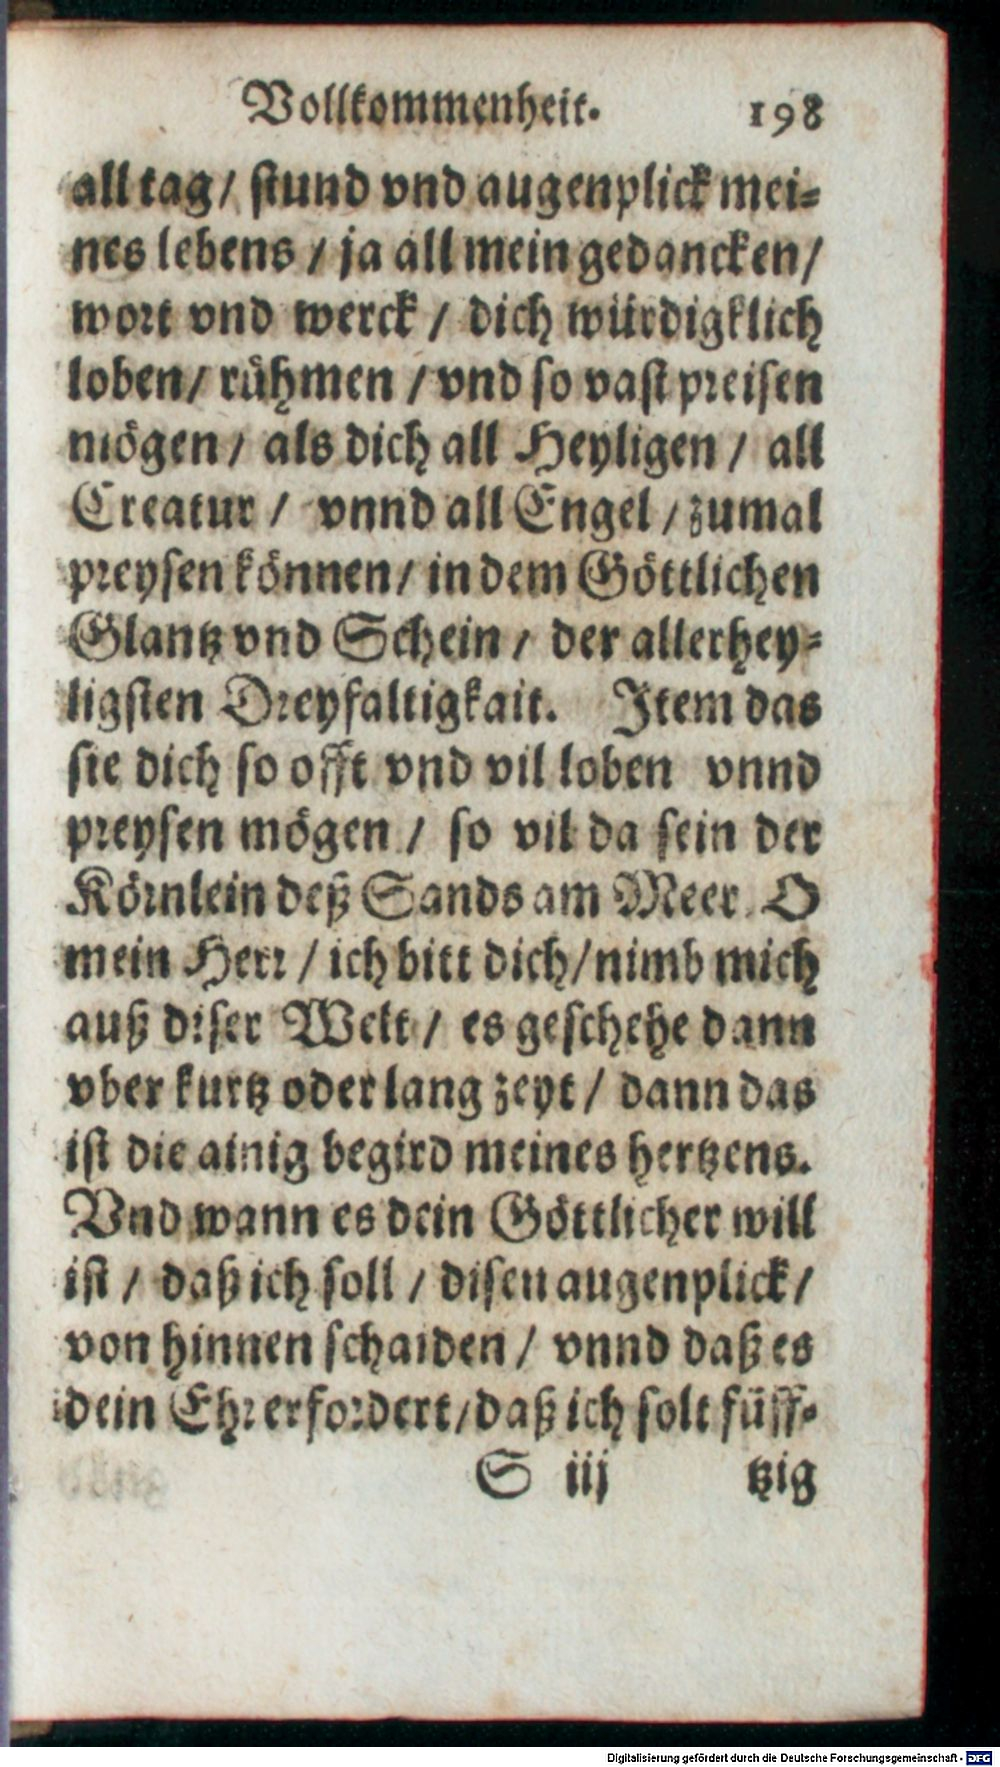 Vollkommenheit. 198
all tag / stund vnd augenplick mei-
nes lebens / ja all mein gedancken /
wort vnd werck / dich würdigklich
loben / rühmen / vnd so vast preisen
mögen / als dich all Heyligen / all
Creatur / vnnd all Engel / zumal
preysen können / in dem Göttlichen
Glantz vnd Schein / der allerhey-
ligsten Dreyfaltigkait. Item das
sie dich so offt vnd vil loben vnnd
preysen mögen / so vil da sein der
Körnlein deß Sands am Meer. O
mein Herr / ich bitt dich / nimb mich
auß diser Welt / es geschehe dann
vber kurtz oder lang zeyt / dann das
ist die ainig begird meines hertzens.
Vnd wann es dein Göttlicher will
ist / daß ich soll / disen augenplick /
von hinnen schaiden / vnnd daß es
dein Ehr erfordert / daß ich solt füff-
S iij tzig
Digitalisierung gefördert durch die Deutsche Forschungsgemeinschaft - DFG